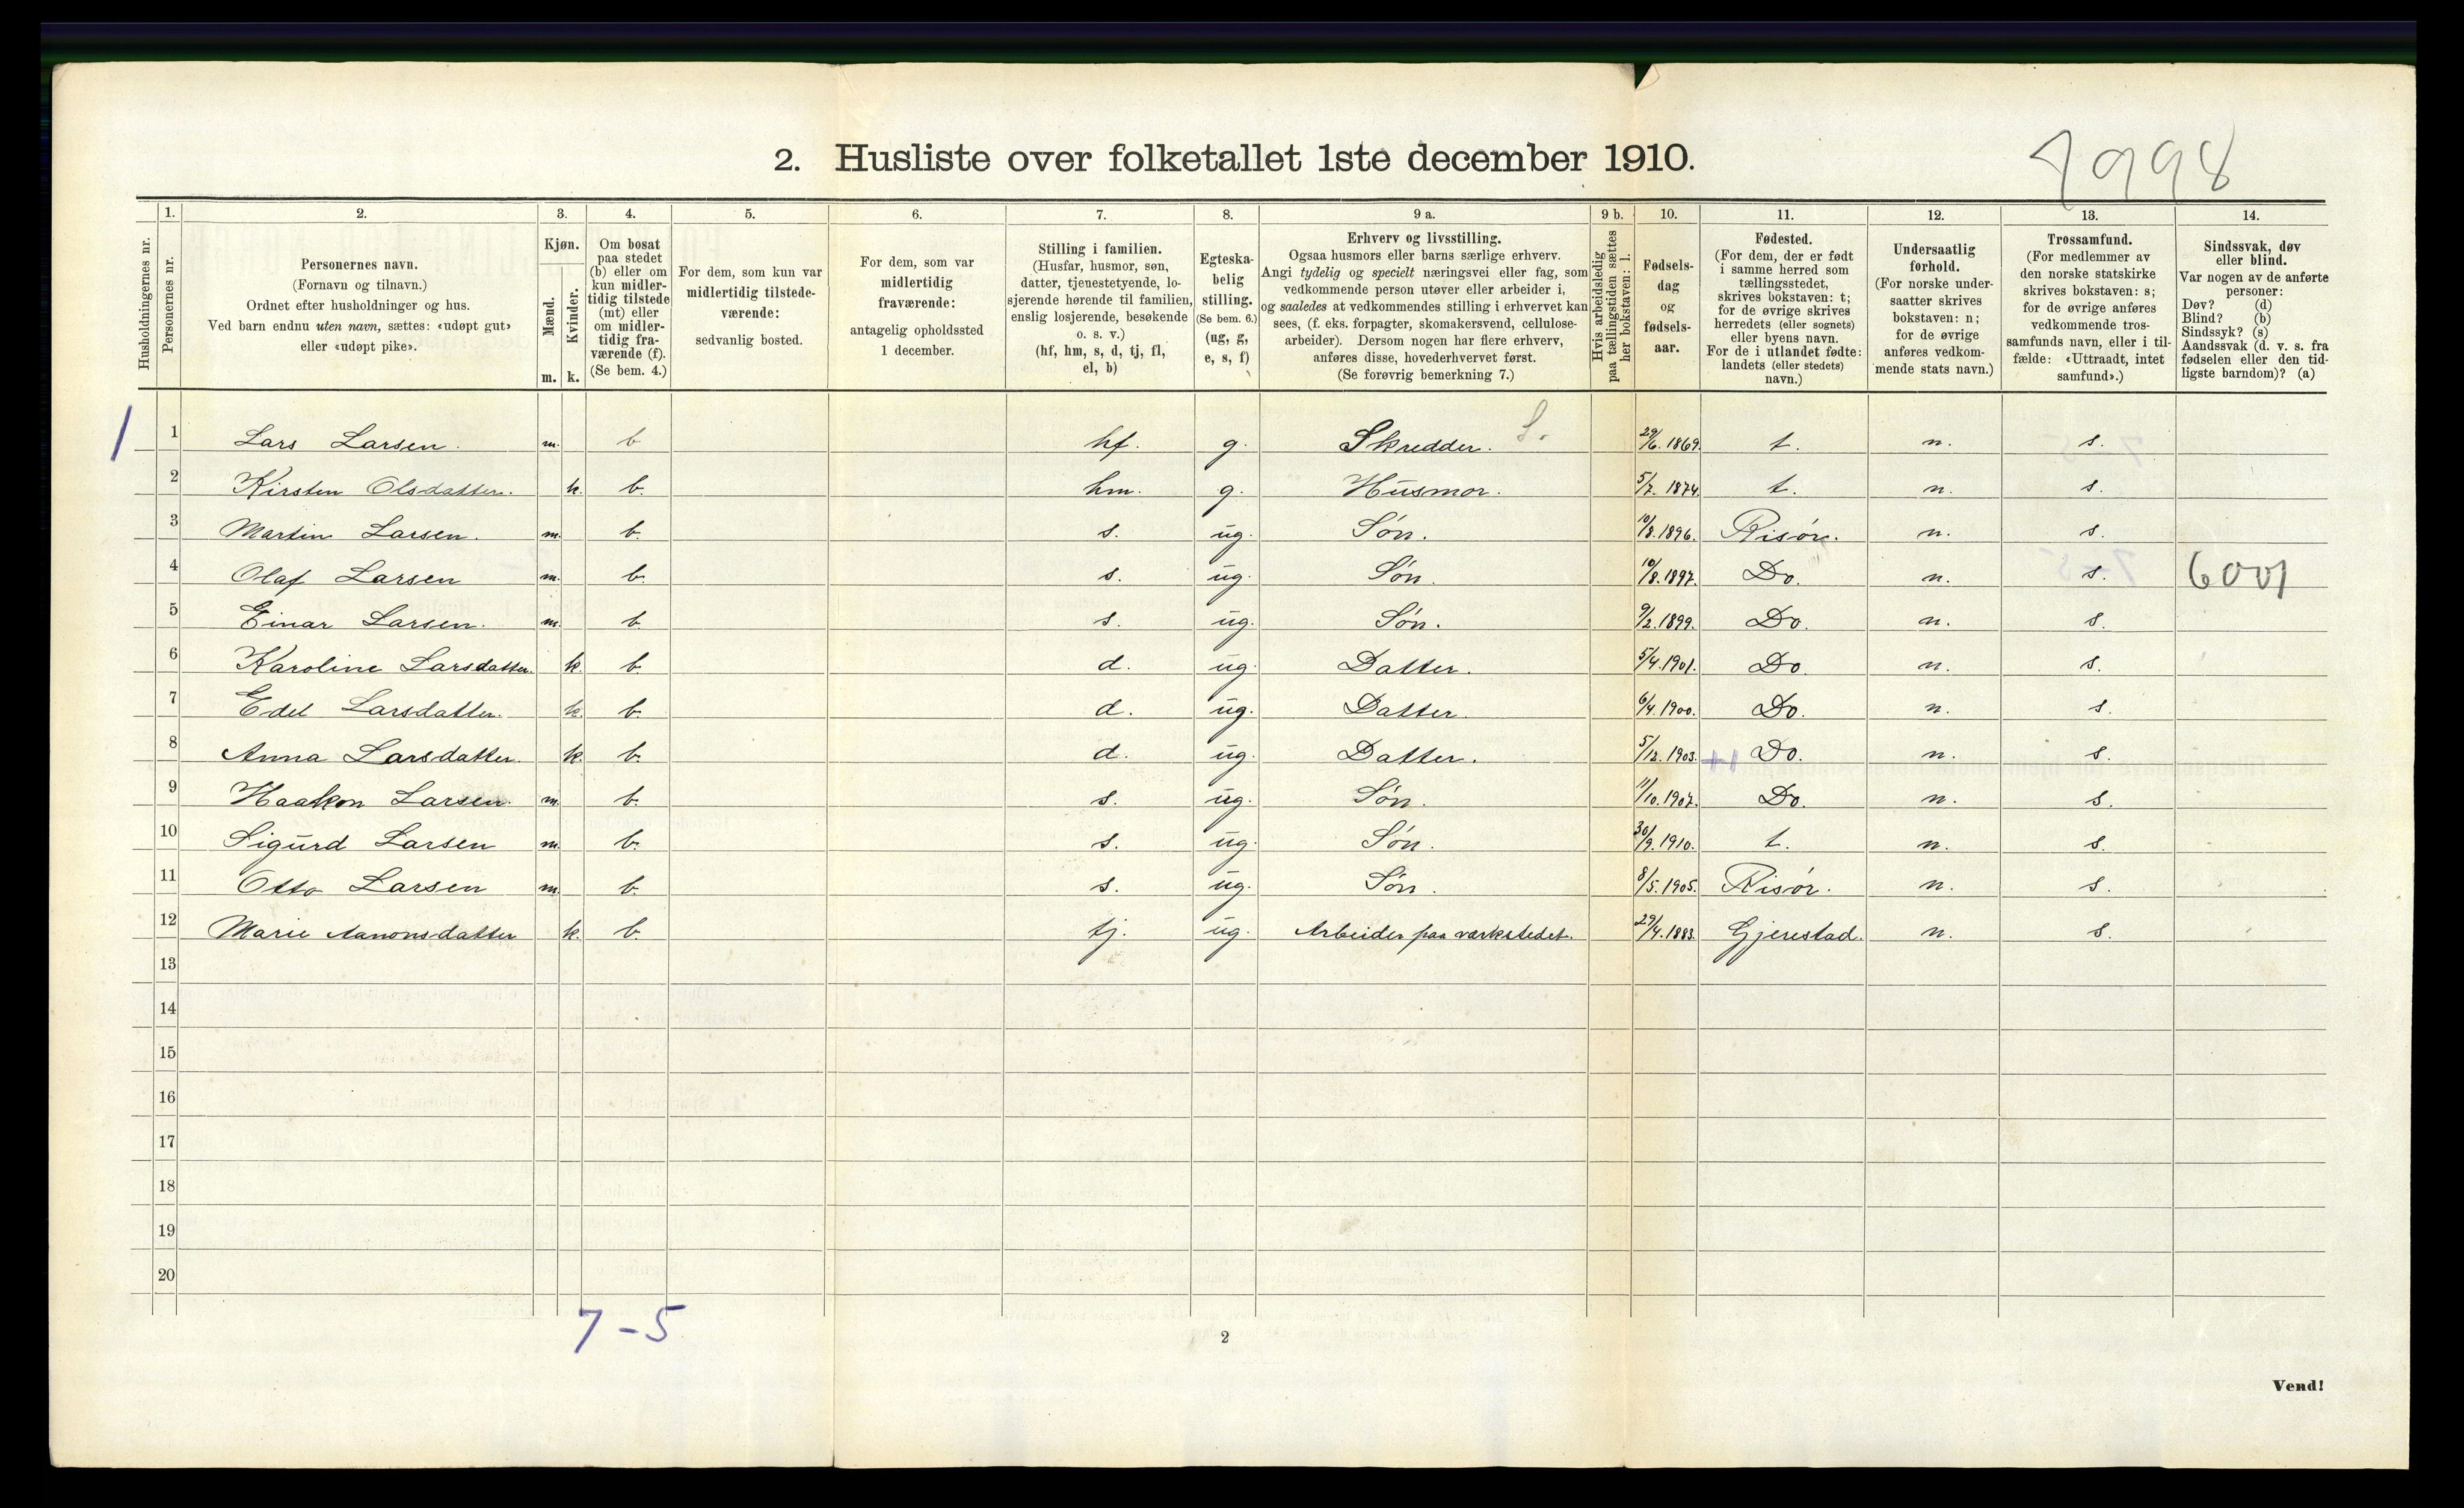 7998
2. Husliste over folketallet 1ste december 1910.
Husholdningernes nr.
1.
Personernes nr.
2.
Personernes navn.
(Fornavn og tilnavn.)
Ordnet efter husholdninger og hus.
Ved barn endnu uten navn, sættes: «udøpt gut»
eller «udøpt pike».
3.
Kjøn.
Mænd.
Kvinder.
m. k.
4.
Om bosat
paa stedet
(b) eller om
kun midler-
tidig tilstede
(mt) eller
om midler-
tidig fra-
værende (f).
(Se bem. 4.)
5.
For dem, som kun var
midlertidig tilstede-
værende:
sedvanlig bosted.
6.
For dem, som var
midlertidig
fraværende:
antagelig opholdssted
1 december.
7.
Stilling i familien.
(Husfar, husmor, søn,
datter, tjenestetyende, lo-
sjerende hørende til familien,
enslig losjerende, besøkende
o. s. v.)
(hf, hm, s, d, tj, fl,
el, b)
8.
Egteska-
belig
stilling.
(Se bem. 6.)
(ug, g,
e, s, f)
9 a.
Erhverv og livsstilling.
Ogsaa husmors eller barns særlige erhverv.
Angi tydelig og specielt næringsvei eller fag, som
vedkommende person utøver eller arbeider i,
og saaledes at vedkommendes stilling i erhvervet kan
sees, (f. eks. forpagter, skomakersvend, cellulose-
arbeider). Dersom nogen har flere erhverv,
anføres disse, hovederhvervet først.
(Se forøvrig bemerkning 7.)
9 b.
Hvis arbeidsledig
paa tællingstiden sættes
her bokstaven: l.
10.
Fødsels-
dag
og
fødsels-
aar.
11.
Fødested.
(For dem, der er født
i samme herred som
tællingsstedet,
skrives bokstaven: t;
for de øvrige skrives
herredets (eller sognets)
eller byens navn.
For de i utlandet fødte:
landets (eller stedets)
navn.)
12.
Undersaatlig
forhold.
(For norske under-
saatter skrives
bokstaven: n;
for de øvrige
anføres vedkom-
mende stats navn.)
13.
Trossamfund.
(For medlemmer av
den norske statskirke
skrives bokstaven: s;
for de øvrige anføres
vedkommende tros-
samfunds navn, eller i til-
fælde: «Uttraadt, intet
samfund».)
14.
Sindssvak, døv
eller blind.
Var nogen av de anførte
personer:
Døv? (d)
Blind? (b)
Sindssyk? (s)
Aandssvak (d. v. s. fra
fødselen eller den tid-
ligste barndom)? (a)
1 1 Lars Larsen. m. b hf. g. Skredder. S. 29/6. 1869. t. n. s.
2 Kirsten Olsdatter. k. b. hm. g. Husmor. 5/7. 1874. t. n. s.
3 Martin Larsen. m. b. s. ug. Søn. 10/8. 1896. Risør. n. s.
4 Olaf Larsen m. b. s. ug. Søn. 10/8. 1897. Do. n. s. 6001
5 Einar Larsen. m. b. s. ug. Søn. 9/2. 1899. Do. n. s.
6 Karoline Larsdatter. k. b. d. ug. Datter. 5/4. 1901. Do n. s.
7 Edel Larsdatter. k. b. d. ug. Datter. 6/4. 1900. Do. n. s.
8 Anna Larsdatter. k. b. d. ug. Datter. 5/12. 1903. Do. n. s.
9 Haakon Larsen. m. b. s. ug. Søn. 11/10. 1907. Do. n. s.
10 Sigurd Larsen m. b. s. ug. Søn. 30/9. 1910. t. n. s.
11 Otto Larsen m. b. s. ug. Søn. 8/5. 1905. Risør. n. s.
12 Marie Aanonsdatter k. b. tj. ug. Arbeider paa værkstedet. 29/4. 1883. Gjerestad. n. s.
13
14
15
16
17
18
19
20
7-5
2
Vend!